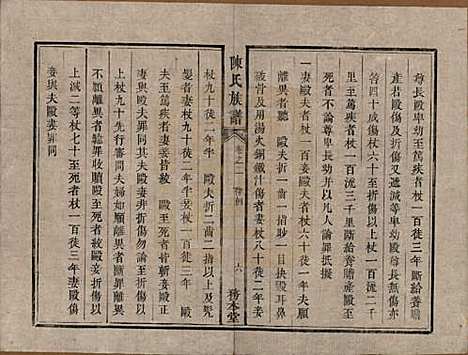 尊長毆卑幼至篤疾者杖一百徒三年斷給養贍
產若毆傷及折傷又遞減等卑幼毆尊長無折傷亦
笞四十成傷杖六十至折傷以上杖一百流二千
里至篤疾者杖一百流三千里斷給養贍產毆至
死者不論尊長卑幼並以凡人論罪抵擬
一妻毆夫者杖一百妾毆夫者杖六十徒一年夫願
離異者聽　毆夫折一齒一指眇一目抉毀耳鼻
破骨及用湯火銅鐵汁傷者妻杖八十徒二年妾
陳氏族譜
卷之一
六
務本堂
杖九十徒二年半　毆夫折二齒二指以上及髠
髮者妻杖九十徒二年半妾杖一百徒三年　毆
夫至篤疾者妻妾皆絞　毆至死者皆斬妾毆正
妻與毆夫罪同其夫毆妻非折傷勿論至折傷以
上杖九十先行審問夫婦如願離異者斷罪離異
不願離異者斷罪收贖至死者絞毆妾至折傷以
上減二等杖七十至死者杖一百徒三年妻毆傷
妾與夫毆妻罪同